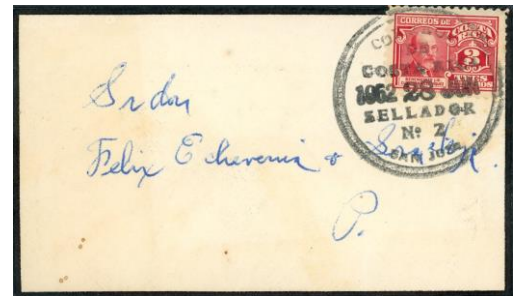 CORREOS DE COSTA RICA
3
COSTA RICA
1962 28
SELLADOR
Nº 2
SAN JOSE
Sr don
Felix Echeverria &
P.